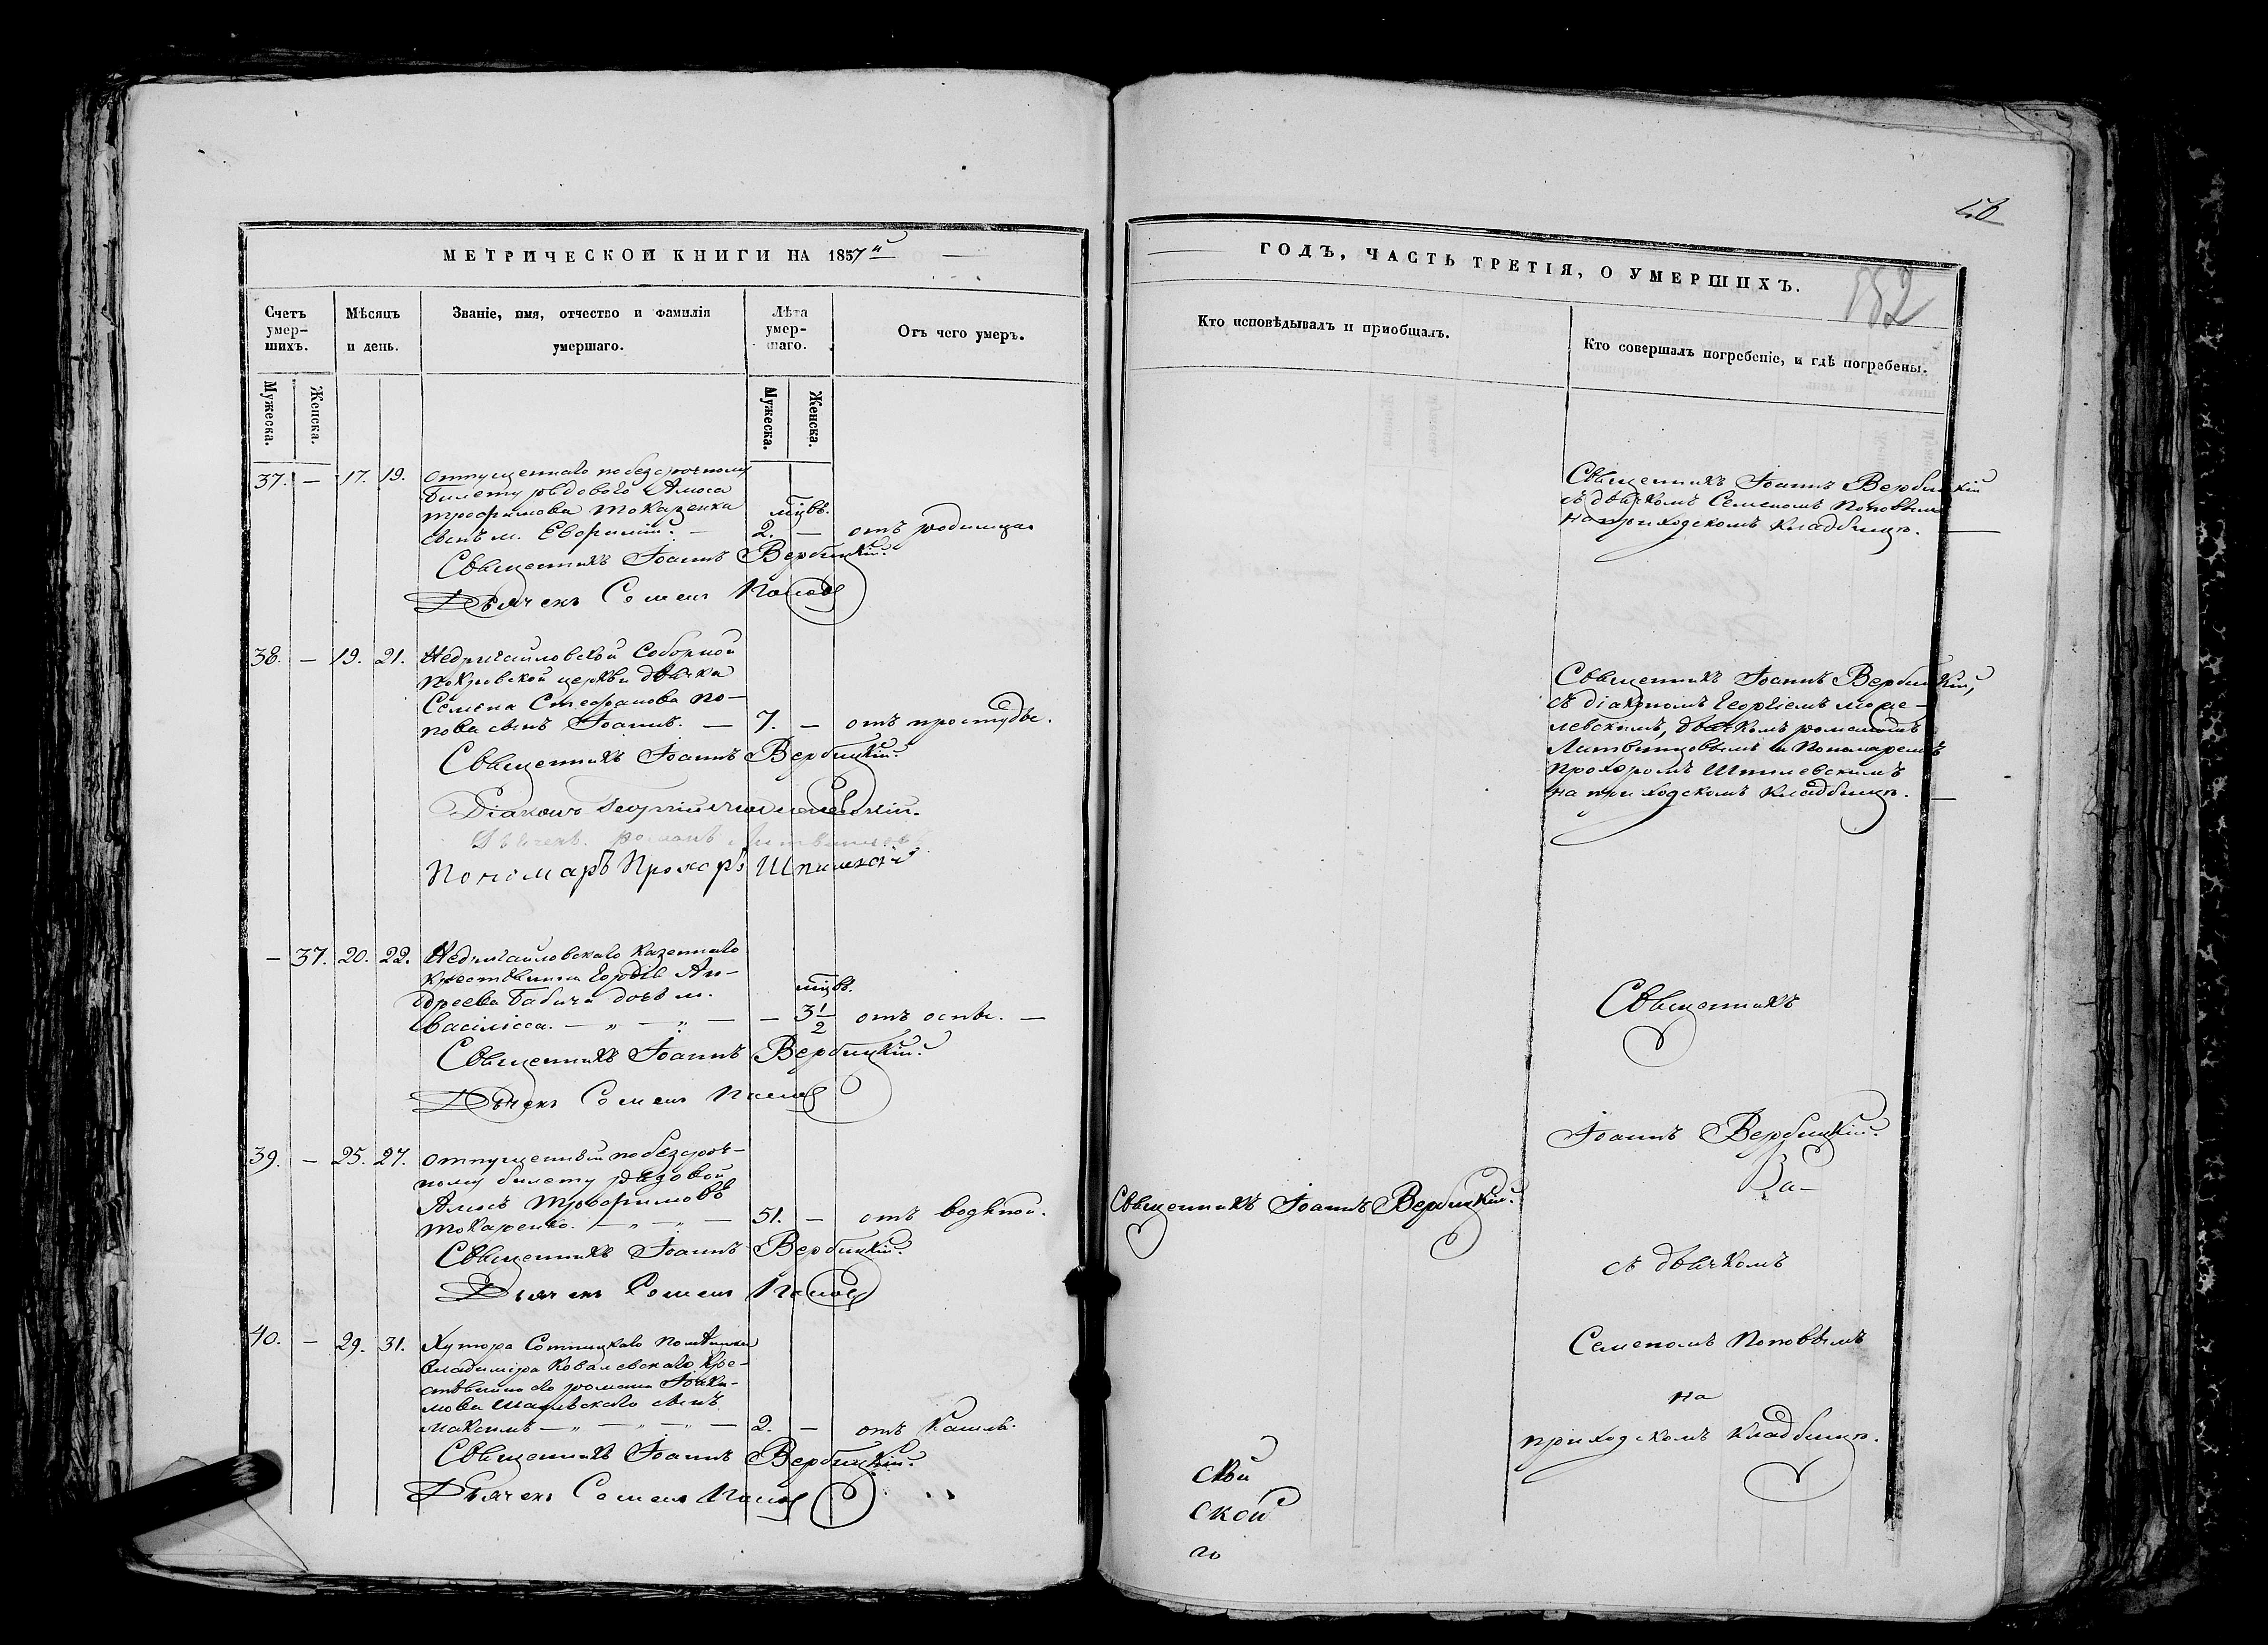 МЕТРИЧЕСКОЙ КНИГИ НА 1857й
Счетъ умер-шихъ.
Мѣсяцъ и день.
Званіе, имя, отчество и фамилія умершаго.
Лѣта умер-шаго.
Отъ чего умеръ.
Мужеска.
Женска.
Мужеска.
Женска.
37. — 17. 19. отпущеннаго по безсрочному
билету рядового Амоса
Трофимова Токаренка
сынъ м. Евфимій. — мцвъ. 2. — отъ родимца
Священникъ Іоаннъ Вербицкій.
Дьячекъ Семенъ Поповъ
38. — 19. 21. Недригайловской Соборной
Покровской церкви дьячка
Семена Стефанова По-
пова сынъ Іоаннъ. — 7. — отъ простуды.
Священникъ Іоаннъ Вербицкій.
Діаконъ Георгій
Дьячекъ Романъ Литвинцовъ
Пономаръ Прохоръ
— 37. 20. 22. Недригайловскаго казеннаго
крестьянина Гордія Ан-
дреева Бабича дочь м.
Василисса. — „ — „ — — мцвъ. 3 1/2 отъ оспы. —
Священникъ Іоаннъ Вербицкій.
Дьячекъ Семенъ Поповъ
39. — 25. 27. отпущенный по безсроч-
ному билету рядовой
Амосъ Трофимовъ
Токаренко. — „ — „ — 51. — отъ водяной.
Священникъ Іоаннъ Вербицкій.
Дьячекъ Семенъ Поповъ
40. — 29. 31. Хутора Сотницкаго помѣщика
Владиміра Ковалевскаго кре-
стьянина Романа Іоаки-
мова сынъ
Максимъ — „ — „ — „ — 2. — отъ кашля.
Священникъ Іоаннъ Вербицкій.
Дьячекъ Семенъ Поповъ
ГОДЪ, ЧАСТЬ ТРЕТІЯ, О УМЕРШИХЪ.
Кто исповѣдывалъ и пріобщалъ.
Кто совершалъ погребеніе, и гдѣ погребены.
Священникъ Іоаннъ Вербицкій
съ дьячкомъ Семеномъ Поповымъ
на приходскомъ кладбищѣ. —
Священникъ Іоаннъ Вербицкій,
съ діакономъ Георгіемъ
дьячкомъ Романомъ
Литвинцовымъ и Пономаремъ
Прохоромъ
на приходскомъ кладбищѣ. —
Священникъ
Іоаннъ Вербицкій.
Священникъ Іоаннъ Вербицкій.
съ дьячкомъ
Семеномъ Поповымъ
на
приходскомъ кладбищѣ.
ской
го